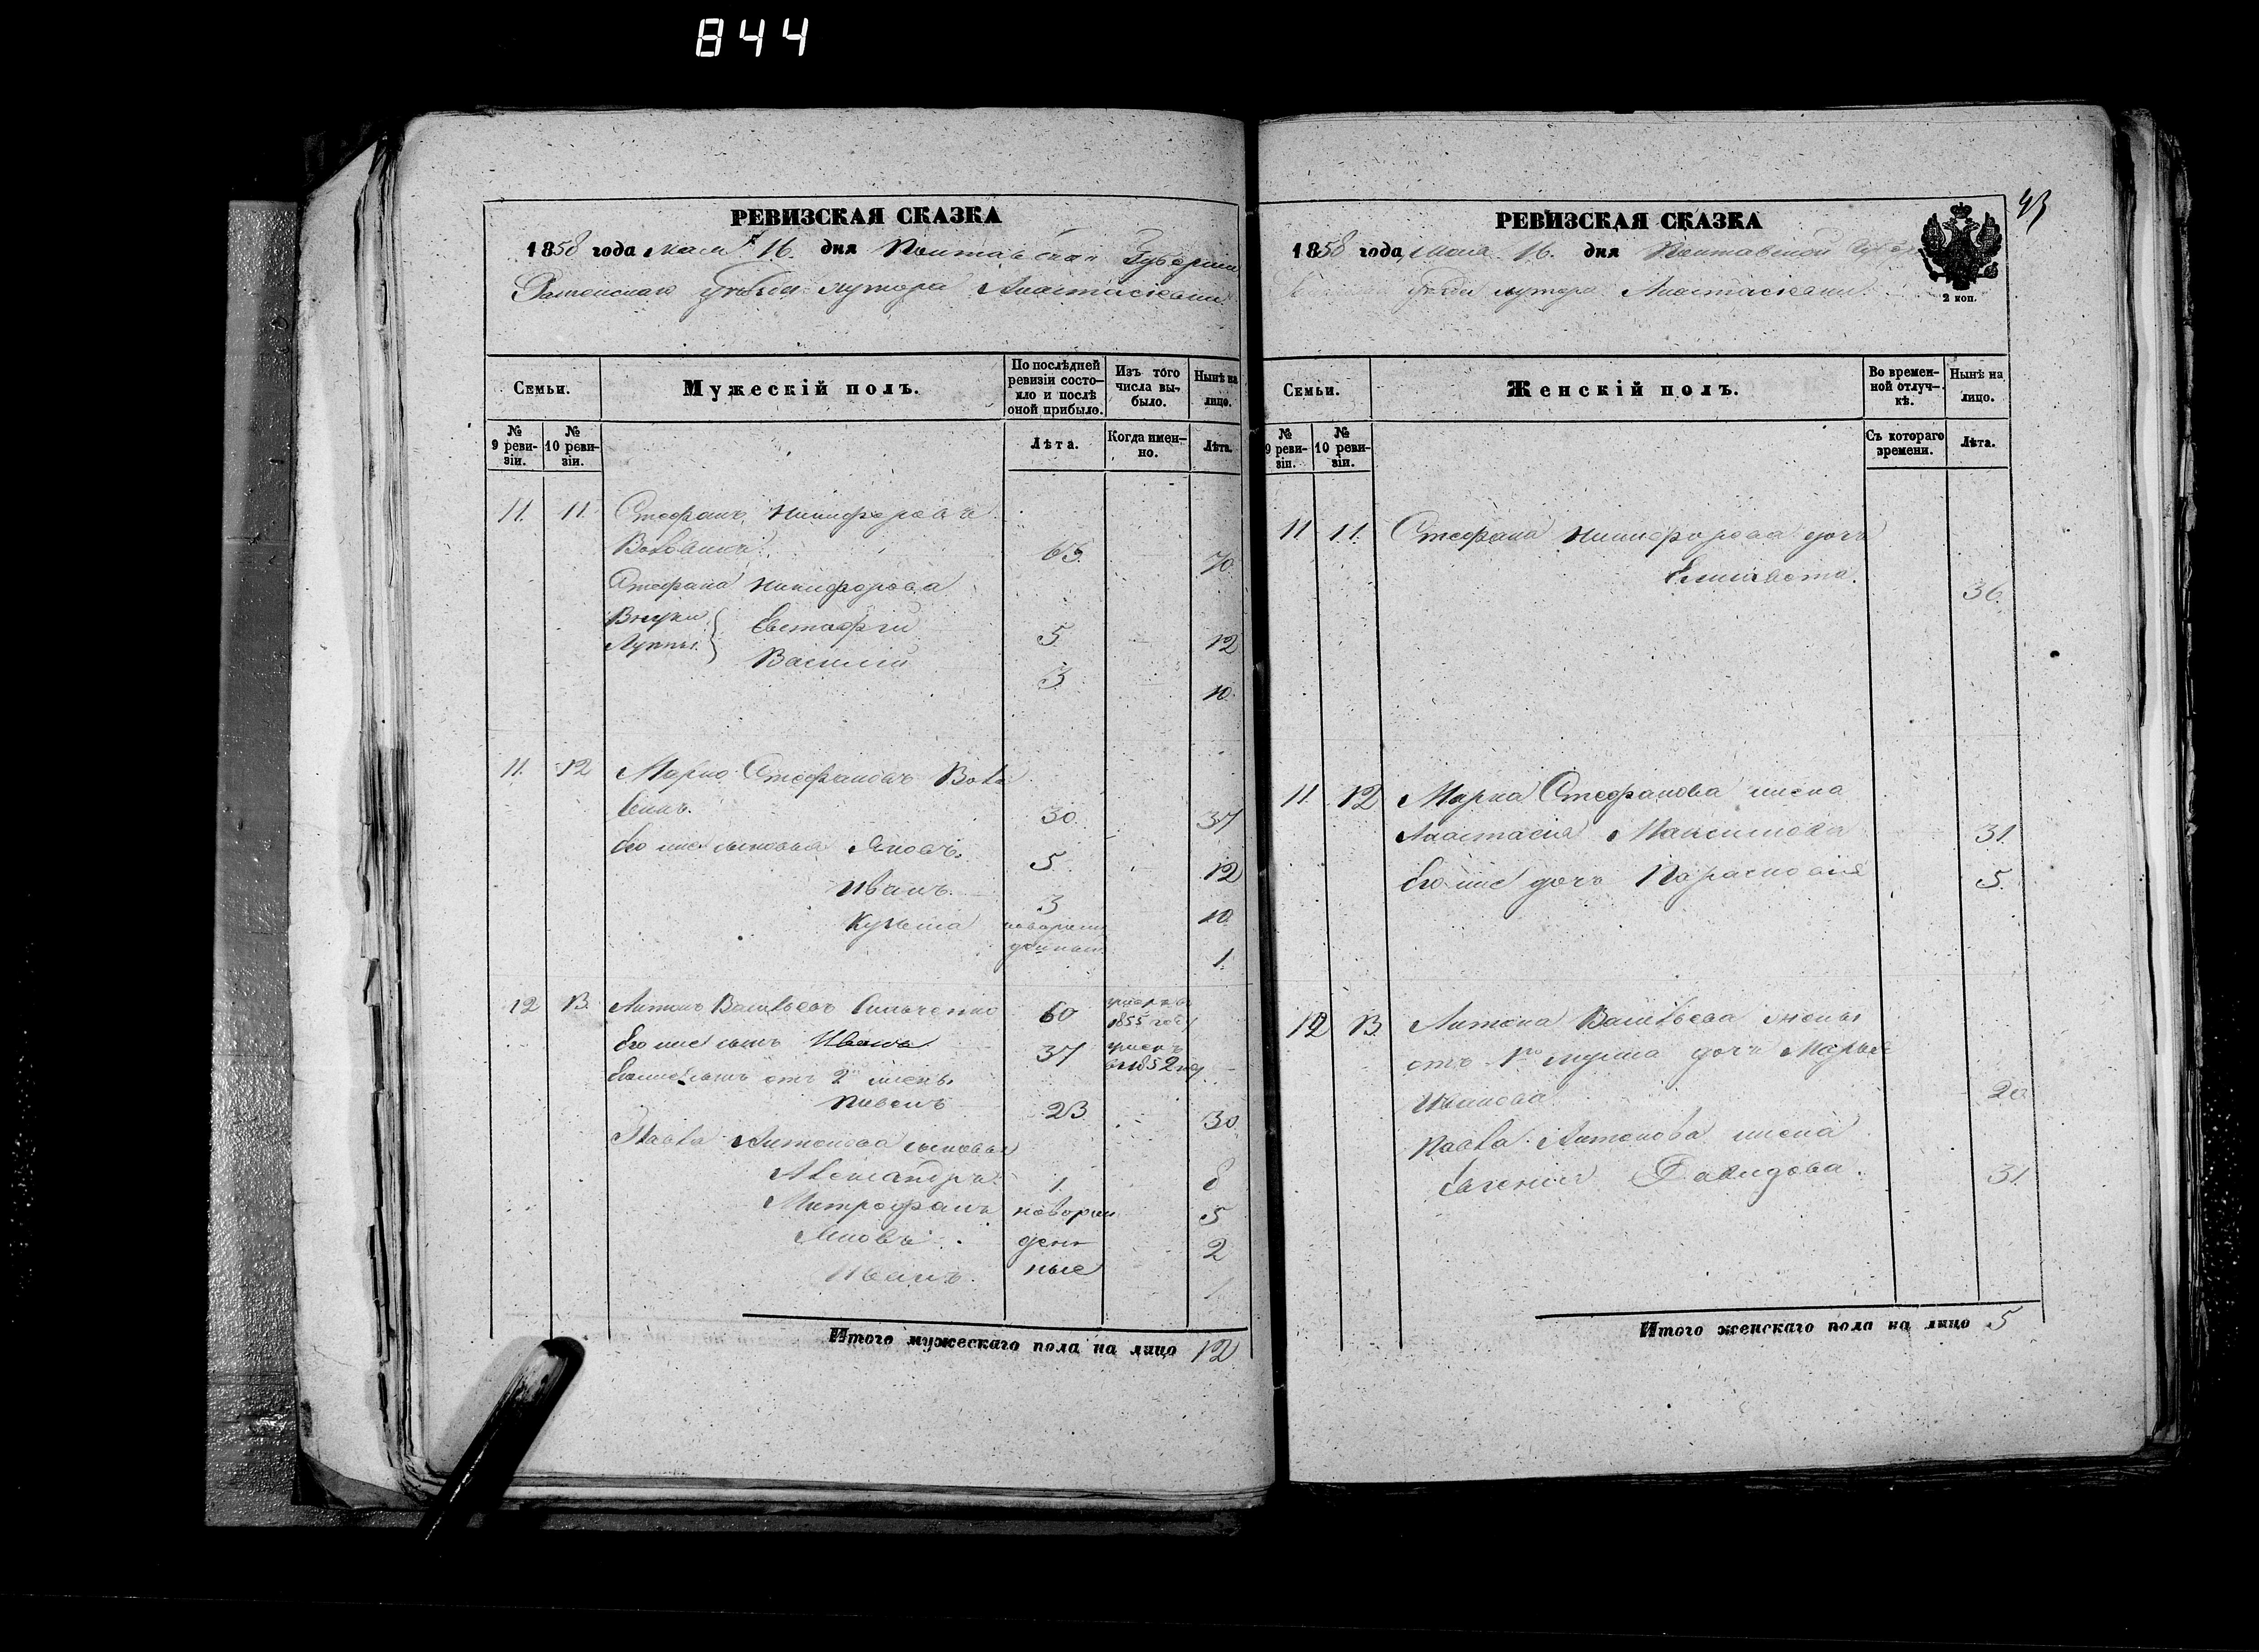 844
РЕВИЗСКАЯ СКАЗКА
1858 года мая 16. дня Полтавской Губернии
уезда хутора Анастасіевки
Семьи.
Мужескій полъ.
По послѣдней ревизіи состояло и послѣ оной прибыло.
Изъ того числа выбыло.
Нынѣ на лицо.
№ 9 ревизіи.
№ 10 ревизіи.
Лѣта.
Когда именно.
Лѣта.
11. 11. Стефанъ Никифоровъ
63. 70.
Стефана Никифорова
Внуки Евстафій 5. 12
Василій 3. 10.
11. 12 Марко Стефановъ
30. 37
Его же сыновья Яковъ. 5 12
Иванъ. 3 10
Кузьма 1.
12 13. Антонъ Васильевъ 60 умеръ въ 1855 году
Его же сынъ Иванъ 37 умеръ въ 1852 году
Его же сынъ от 2й жены
Павелъ 23 30
Павла Антонова сыновья
Александръ 1. 8
Митрофанъ новорож 5
Яковъ ден 2
Иванъ. ные 1
Итого мужескаго пола на лицо 12
43
РЕВИЗСКАЯ СКАЗКА
1858 года, Мая 16. дня Полтавской
хутора Анастасіевки
2 коп.
Семьи.
Женскій полъ.
Во временной отлучкѣ.
Нынѣ на лицо.
№ 9 ревизіи.
№ 10 ревизіи.
Съ котораго времени.
Лѣта.
11 11. Стефана Никифорова дочь
Елисавета. 36.
11. 12 Марка Стефанова жена
Анастасія Максимова 31.
Его же дочь Парасковія 5.
12 13. Антона Васильева жены
отъ 1го мужа дочь Марья
Иванова 20
Павла Антонова жена
Евгенія Давидова. 31.
Итого женскаго пола на лицо 5